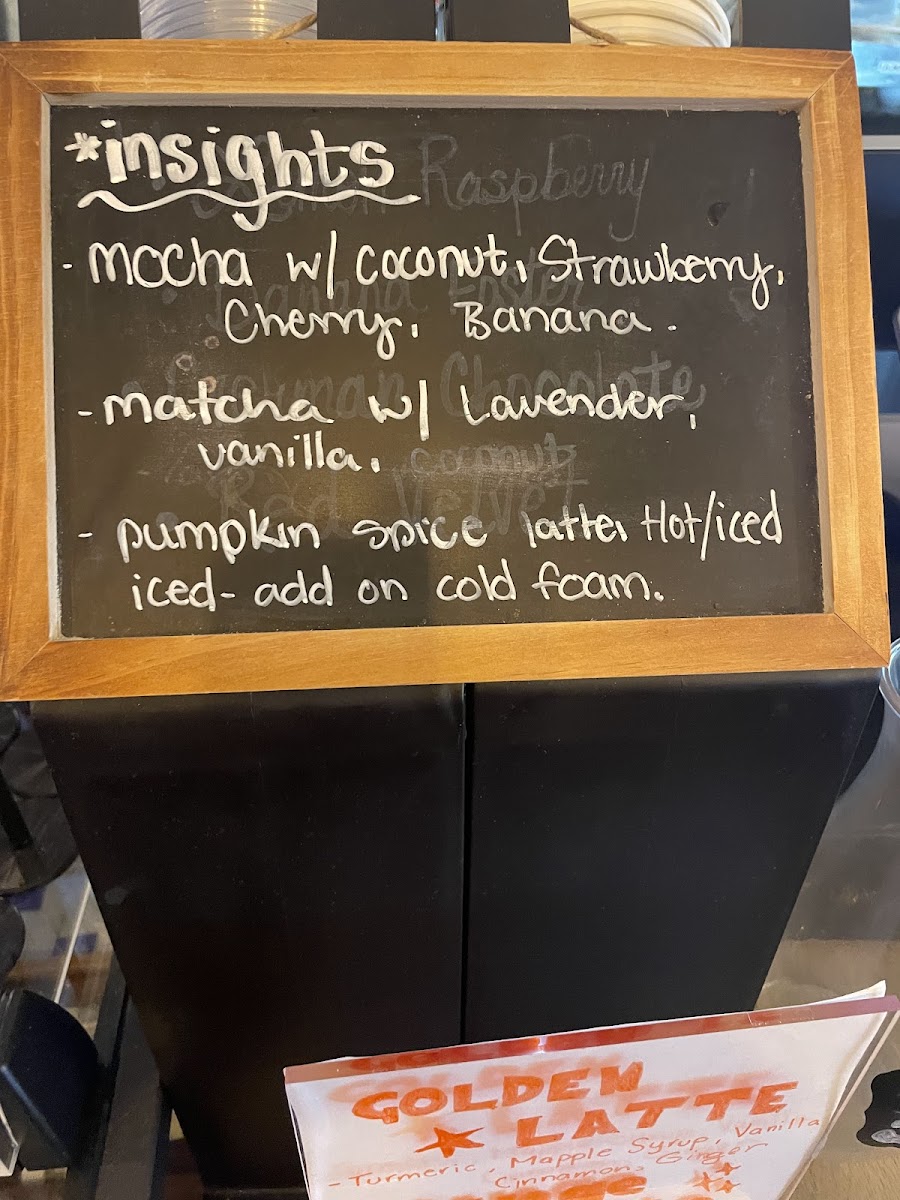 *insights
- mocha w/ coconut, Strawberry,
Cherry, Banana.
- matcha w/ Lavender,
vanilla, coconut
- pumpkin spice latte, Hot/iced
iced- add on cold foam.
Raspberry
Chocolate
Red Velvet
GOLDEN
LATTE
- Turmeric, Mapple Syrup, Vanilla
Cinnamon, Ginger